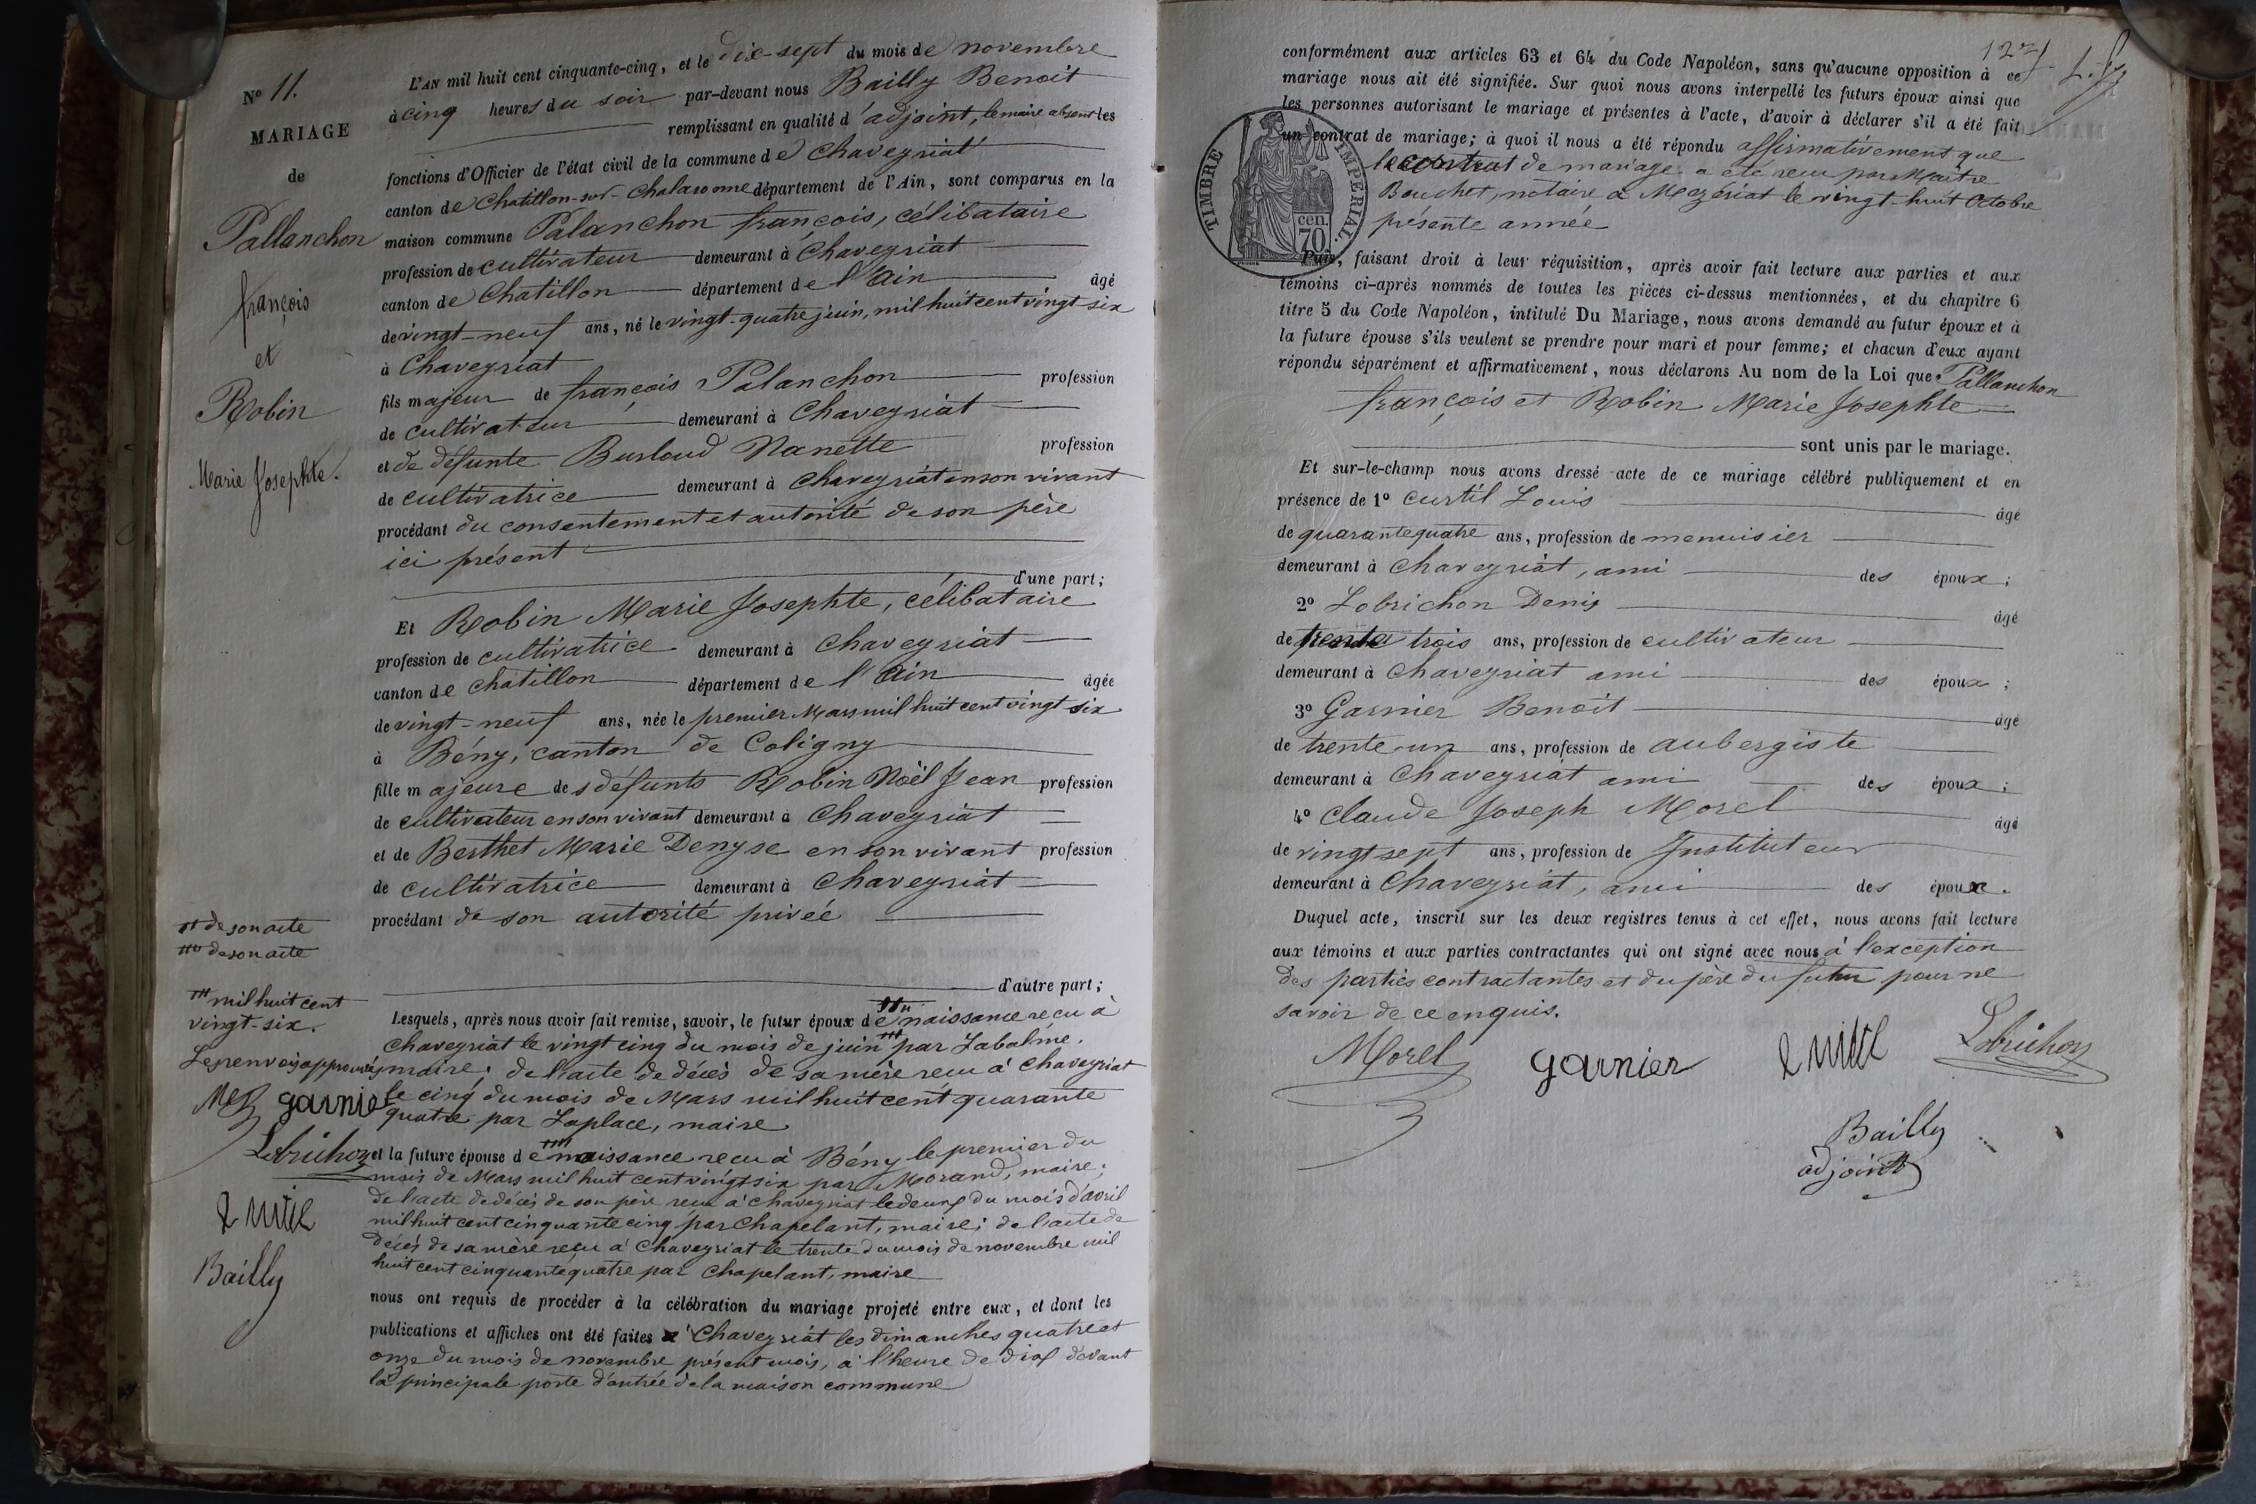 N° 11.
MARIAGE
de
Pallanchon
françois
et
Robin
Marie Josephte.
L'AN mil huit cent cinquante-cinq, et le dix-sept du mois de novembre
à cinq heures du soir par-devant nous Bailly Benoit
remplissant en qualité d'adjoint, le maire absent les
fonctions d'Officier de l'état civil de la commune de Chaveyriat
canton de Chatillon-sur-Chalaronne département de l'Ain, sont comparus en la
maison commune Palanchon françois, célibataire
profession de cultivateur demeurant à Chaveyriat
canton de Chatillon département de l'Ain âgé
de vingt-neuf ans, né le vingt-quatre juin, mil huit cent vingt-six
à Chaveyriat
fils majeur de françois Palanchon profession
de cultivateur demeurant à Chaveyriat
et de défunte Burloud Nanette profession
de cultivatrice demeurant à Chaveyriat en son vivant
procédant du consentement et autorité de son père
ici présent
d'une part;
Et Robin Marie Josephte, célibataire
profession de cultivatrice demeurant à Chaveyriat
canton de Chatillon département de l'Ain âgée
de vingt-neuf ans, née le premier Mars mil huit cent vingt-six
à Bény, canton de Coligny
fille majeure des défunts Robin Noël Jean profession
de cultivateur en son vivant demeurant à Chaveyriat
et de Berthet Marie Denyse en son vivant profession
de cultivatrice demeurant à Chaveyriat
procédant de son autorité privée
d'autre part;
de son acte
de son acte
mil huit cent
vingt-six.
Les renvois approuvés
garnier
Lobrichon
Bailly
Lesquels, après nous avoir fait remise, savoir, le futur époux de naissance reçu à
Chaveyriat le vingt cinq du mois de juin par Labalme,
maire; de l'acte de décès de sa mère reçu à Chaveyriat
le cinq du mois de Mars mil huit cent quarante
quatre par Laplace, maire
et la future épouse de naissance reçu à Bény le premier du
mois de Mars mil huit cent vingt six par Morand, maire;
de l'acte de décès de son père reçu à Chaveyriat le deux du mois d'avril
mil huit cent cinquante cinq par Chapelant, maire; de l'acte de
décès de sa mère reçu à Chaveyriat le trente du mois de novembre mil
huit cent cinquante quatre par Chapelant, maire
nous ont requis de procéder à la célébration du mariage projeté entre eux, et dont les
publications et affiches ont été faites à Chaveyriat les dimanches quatre et
onze du mois de novembre présent mois, à l'heure de dix devant
la principale porte d'entrée de la maison commune
conformément aux articles 63 et 64 du Code Napoléon, sans qu'aucune opposition à ce
mariage nous ait été signifiée. Sur quoi nous avons interpellé les futurs époux ainsi que
les personnes autorisant le mariage et présentes à l'acte, d'avoir à déclarer s'il a été fait
un contrat de mariage; à quoi il nous a été répondu affirmativement que
le contrat de mariage a été reçu par Maître
Bouchet, notaire à Mezériat le vingt-huit Octobre
présente année
TIMBRE IMPERIAL.
cen.
70
Puis, faisant droit à leur réquisition, après avoir fait lecture aux parties et aux
témoins ci-après nommés de toutes les pièces ci-dessus mentionnées, et du chapitre 6
titre 5 du Code Napoléon, intitulé Du Mariage, nous avons demandé au futur époux et à
la future épouse s'ils veulent se prendre pour mari et pour femme; et chacun d'eux ayant
répondu séparément et affirmativement, nous déclarons Au nom de la Loi que Pallanchon
françois et Robin Marie Josephte
sont unis par le mariage.
Et sur-le-champ nous avons dressé acte de ce mariage célébré publiquement et en
présence de 1° Curtil Louis âgé
de quarante quatre ans, profession de menuisier
demeurant à Chaveyriat, ami des époux;
2° Lobrichon Denis âgé
de trente trois ans, profession de cultivateur
demeurant à Chaveyriat ami des époux;
3° Garnier Benoit âgé
de trente-un ans, profession de aubergiste
demeurant à Chaveyriat ami des époux;
4° Claude Joseph Morel âgé
de vingt sept ans, profession de Instituteur
demeurant à Chaveyriat, ami des époux.
Duquel acte, inscrit sur les deux registres tenus à cet effet, nous avons fait lecture
aux témoins et aux parties contractantes qui ont signé avec nous à l'exception
des parties contractantes et du père du futur pour ne
savoir de ce enquis.
Morel garnier Lobrichon
Bailly
adjoint